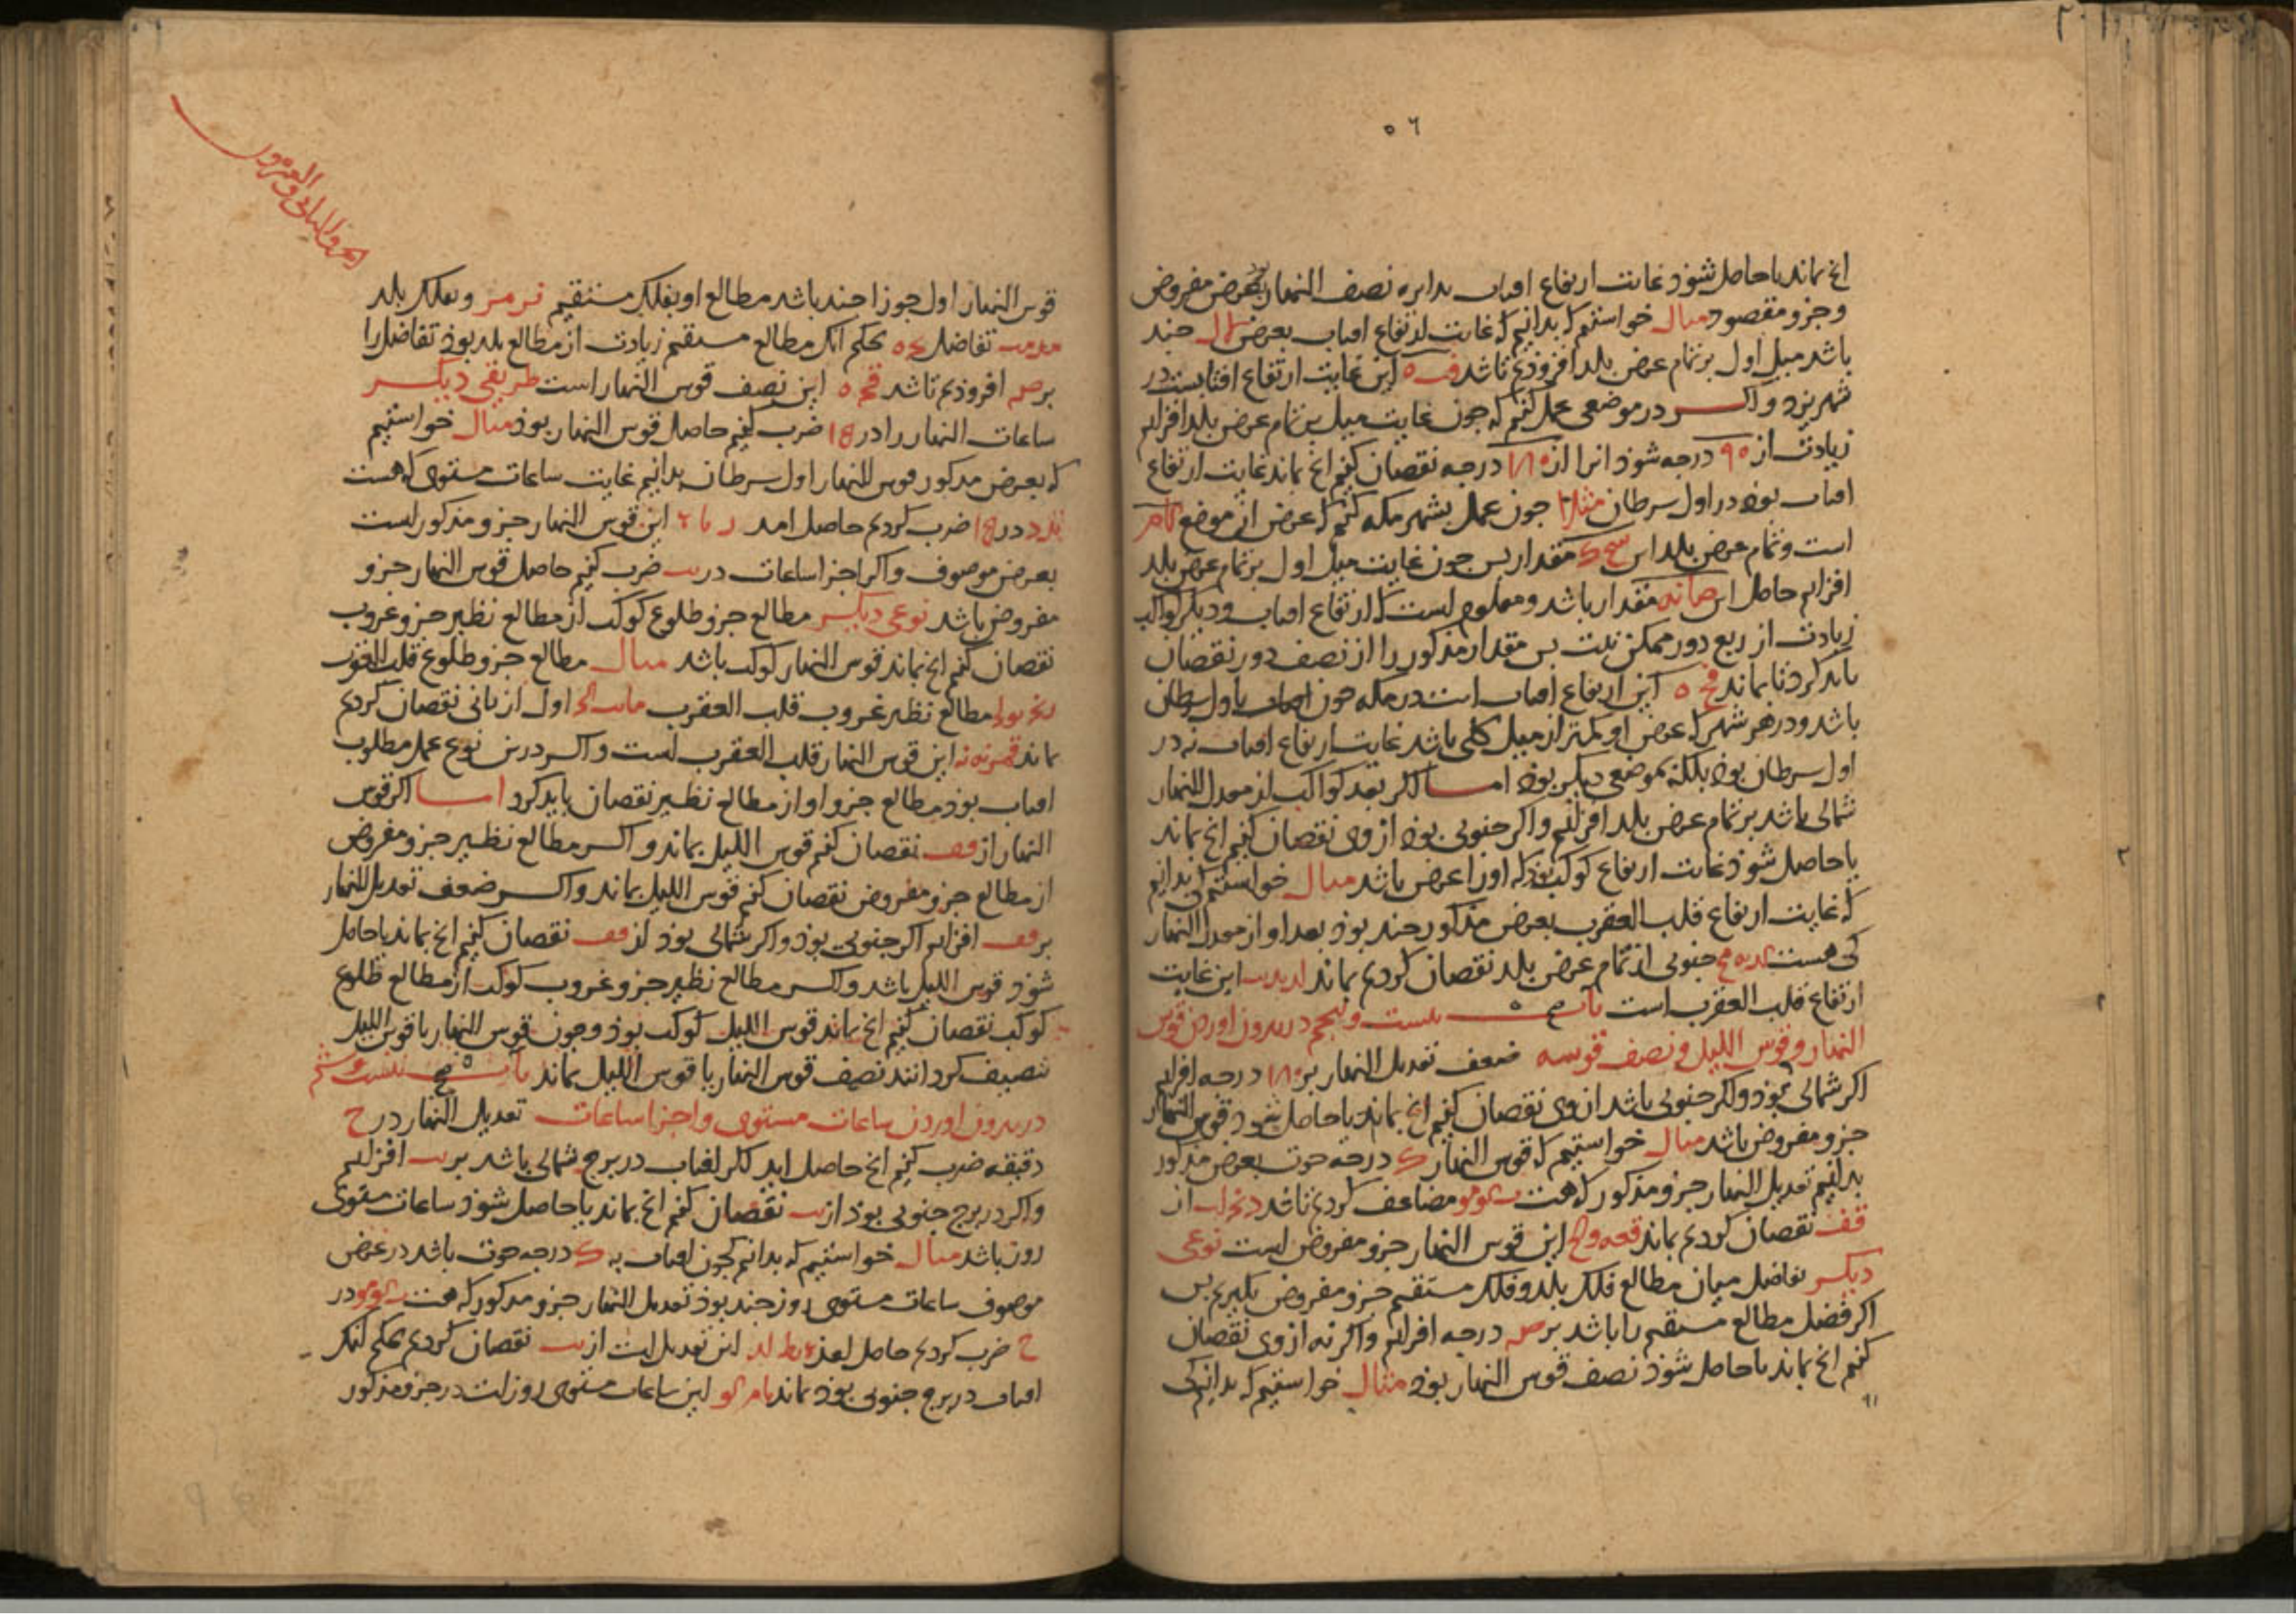 ٥٦
انچ بماند یا حاصل شوذ غایت ارتفاع افتاب بدایره نصف النهار بعرض مفروض
و جزو مقصود مثال خواستیم که بدانیم که غایت ارتفاع افتاب بعرض چند
باشد میل اول بر تمام عرض بلد افزودیم تا شد این غایت ارتفاع افتابست در
شهر یزد و اکر در موضعی عمل کنیم که چون غایت میل بر تمام عرض بلد افزایم
زیادت از ٩٠ درجه شوذ انرا از ١٨٠ درجه نقصان کنیم انچ بماند غایت ارتفاع
افتاب بوذ در اول سرطان مثلا چون عمل بشهر مکه کنیم که عرض ان موضع کام
است و تمام عرض بلد این مقدار پس چون غایت میل اول بر تمام عرض بلد
افزایم حاصل این مقدار باشد و معلوم است که ارتفاع افتاب و دیکر کواکب
زیادت از ربع دور ممکن نیست پس مقدار مذکور را از نصف دور نقصان
باید کرد تا بماند این ارتفاع افتاب است در مکه چون افتاب باول سرطان
باشد و در هر شهر که عرض او کمتر از میل کلی باشد غایت ارتفاع افتاب نه در
اول سرطان بوذ بلکه بموضعی دیکر بوذ اما اکر بعد کواکب از معدل النهار
شمالی باشد بر تمام عرض بلد افزائیم و اکر جنوبی بوذ از وی نقصان کنیم انچ بماند
یا حاصل شوذ غایت ارتفاع کوکب بوذ که او را عرض باشد مثال خواستیم که بدانیم
که غایت ارتفاع قلب العقرب بعرض مذکور چند بوذ بعد او از معدل النهار
کی هست جنوبی از تمام عرض بلد نقصان کردیم بماند این غایت
ارتفاع قلب العقرب است باب بیست و پنجم در بیرون اوردن قوس
النهار و قوس اللیل و نصف قوسه ضعف تعدیل النهار بر ١٨٠ درجه افزایم
اکر شمالی بوذ و اکر جنوبی باشد از وی نقصان کنیم انچ بماند یا حاصل شود قوس النهار
جزو مفروض باشد مثال خواستیم که قوس النهار ک درجه حوت بعرض مذکور
بدانیم تعدیل النهار جزو مذکور که هست مضاعف کردیم تا شد از
قف نقصان کردیم بماند این قوس النهار جزو مفروض است نوعی
دیکر تفاضل میان مطالع فلک بلد و فلک مستقیم جزو مفروض بکیریم پس
اکر فضل مطالع مستقیم را باشد بر ص درجه افزایم و اکر نه از وی نقصان
کنیم انچ بماند یا حاصل شوذ نصف قوس النهار بوذ مثال خواستیم که بدانیم کی
قوس النهار اول جوزا چند باشد مطالع او بفلک مستقیم نر مر و بفلک بلد
تفاضل بحکم انک مطالع مستقیم زیادت از مطالع بلد بوذ تفاضل را
بر ص افزودیم تا شد این نصف قوس النهار است طریقی دیکر
ساعات النهار را در ١٥ ضرب کنیم حاصل قوس النهار بوذ مثال خواستیم
که بعرض مذکور قوس النهار اول سرطان بدانیم غایت ساعات مستوی که هست
در ١٥ ضرب کردیم حاصل امد این قوس النهار جزو مذکور است
بعرض موصوف و اکر اجزا ساعات در یب ضرب کنیم حاصل قوس النهار جزو
مفروض باشد نوعی دیکر مطالع جزو طلوع کوکب از مطالع نظیر جزو غروب
نقصان کنیم انچ بماند قوس النهار کوکب باشد مثال مطالع جزو طلوع قلب العقرب
مطالع نظیر غروب قلب العقرب اول از ثانی نقصان کردیم
ماند این قوس النهار قلب العقرب است و اکر درین نوع عمل مطلوب
افتاب بوذ مطالع جزو او از مطالع نظیر نقصان باید کرد اما اکر قوس
النهار از نقصان کنیم قوس اللیل بماند و اکر مطالع نظیر جزو مفروض
از مطالع جزو مفروض نقصان کنیم قوس اللیل بماند و اکر ضعف تعدیل النهار
بر قف افزایم اکر جنوبی بوذ و اکر شمالی بوذ از قف نقصان کنیم انچ بماند یا حاصل
شوذ قوس اللیل باشد و اکر مطالع نظیر جزو غروب کوکب از مطالع طلوع
کوکب نقصان کنیم انچ بماند قوس اللیل کوکب بوذ و چون قوس النهار یا قوس اللیل
تنصیف کردانند نصیف قوس النهار یا قوس اللیل بماند باب بیست و ششم
در بیرون اوردن ساعات مستوی و اجزا ساعات تعدیل النهار در ح
دقیقه ضرب کنیم انچ حاصل اید اکر افتاب در برج شمالی باشد بر یب افزائیم
و اکر در برج جنوبی بوذ از یب نقصان کنیم انچ بماند یا حاصل شوذ ساعات مستوی
روز باشد مثال خواستیم که بدانیم که چون افتاب به ک درجه حوت باشد در عرض
موصوف ساعات مستوی روز چند بوذ تعدیل النهار جزو مذکور که هست در
ح ضرب کردیم حاصل امذ این تعدیل است از یب نقصان کردیم بحکم انک
افتاب در برج جنوبی بوذ بماند این ساعات مستوی روز است در جزو مذکور